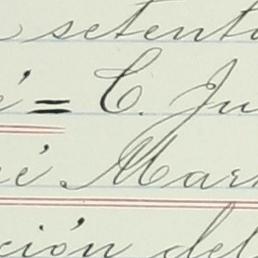 setent
é = C. Ju
é Mar
ción del